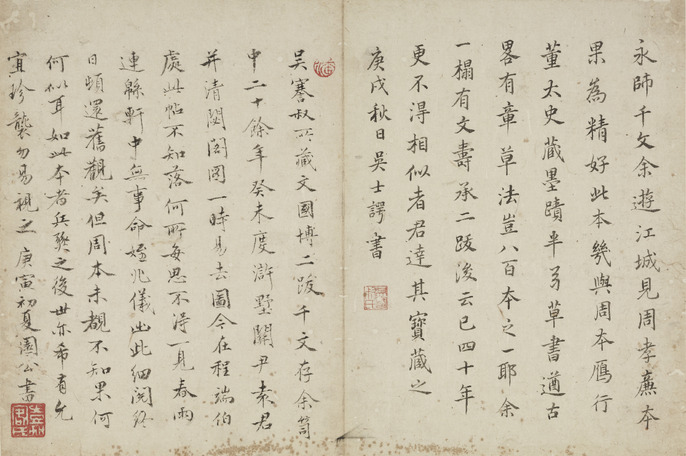 永師千文余遊江城見周孝廉本
果為精好此本幾與周本鴈行
董太史蔵墨蹟半草書遒古
畧有章草法豈八百本之一耶余
一搨有文壽承二跋後云已四十年
更不得相似者君達其寳藏之
庚戌秋日吳士諤書
吳審叔所藏文國博二跋千文存余笥
中二十餘年癸未度滸墅關尹袁君
并清閟閣圖一時易去圖今在程端伯
處此帖不知落何所每思不得一見春雨
連緜軒中無事命姪兆儀出此細閱終
日頓還舊觀矣但周本未覩不知果何
何似耳如此本者兵燹之後世亦希有允
宜珍襲勿易視之庚寅初夏園公書